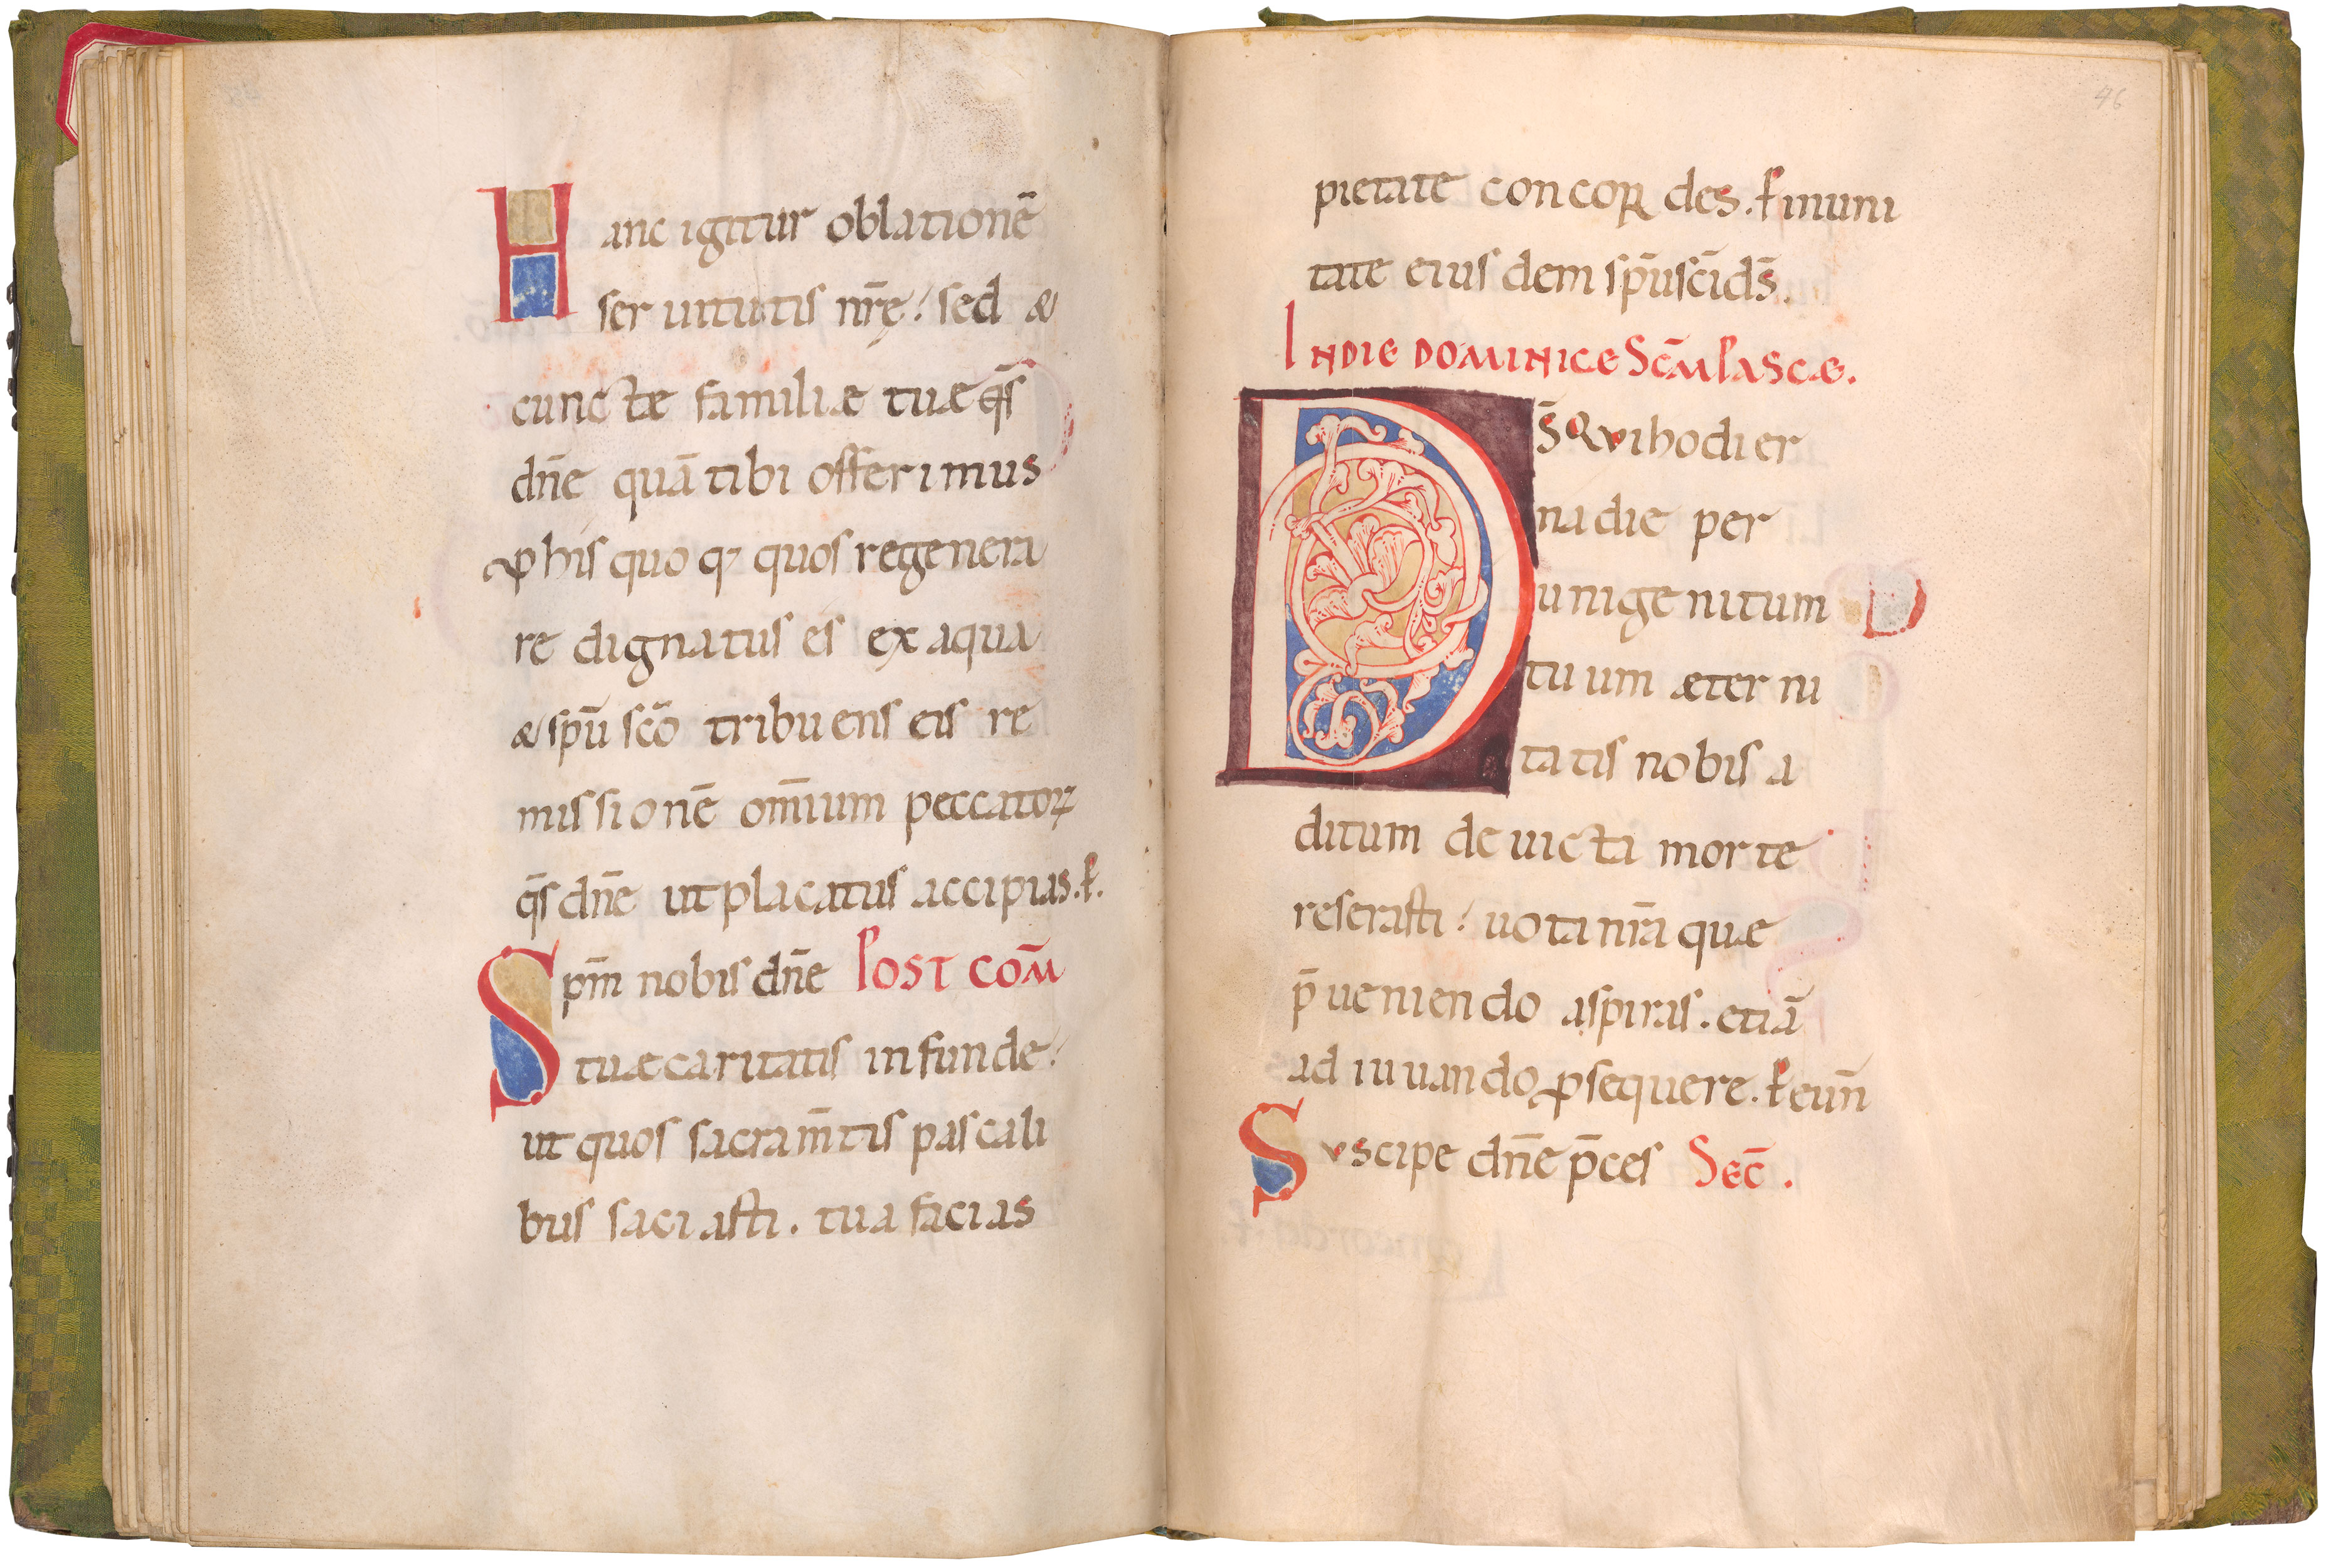 Hanc igitur oblationē
seruitutis nr̄ę. sed &
cunctæ familiæ tuæ q̄s
dn̄e quā tibi offerimus
ꝓ his quo qꝫ quos regenera
re dignatus es ex aqua
& spū scō tribuens eis re
missionē om̄ium peccatoꝝ
q̄s dn̄e ut placatus accipias. P̱.
Spm̄ nobis dn̄e Post com̄
tuæ caritatis infunde.
ut quos sacram̄tis pascali
bus saciasti. tua facias
46
pietate concoꝝdes. P̱ in uni
tate eiusdem sp̄us sc̄i ds̄.
In die dominice Sc̄m Pascæ.
Ds̄ qui hodier
na die per
unigenitum
tuum æterni
tatis nobis a
ditum deuicta morte
reserasti. uota nr̄a quæ
p̄ueniendo aspiras. etiā
adiuuando ꝓsequere. P̱ eun̄
Suscipe dn̄e p̄ces Sec̄.